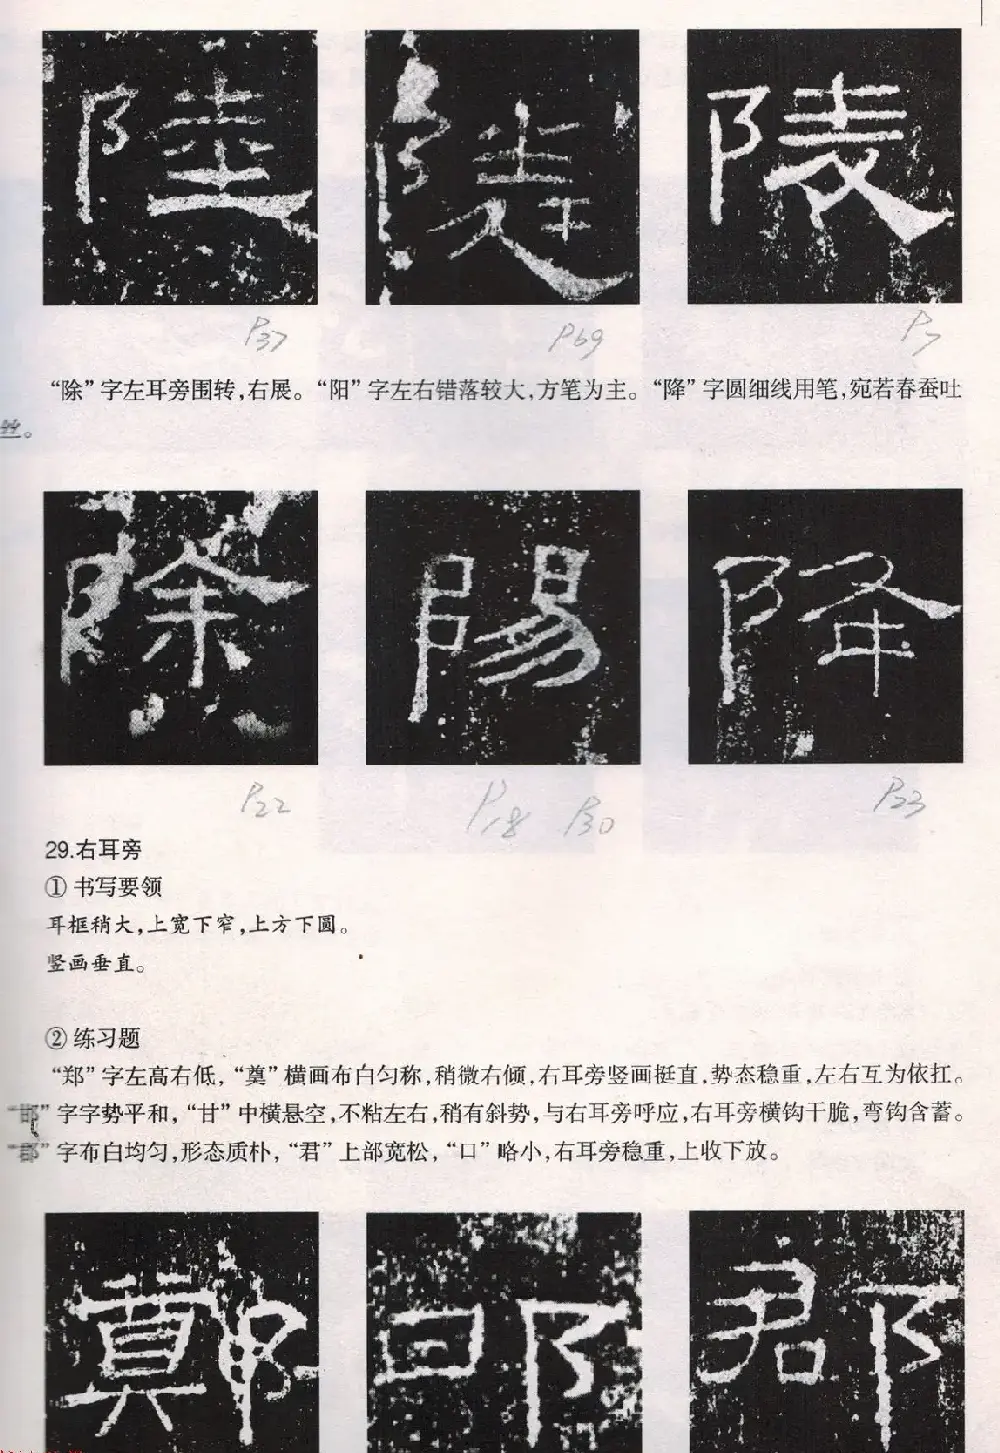 陸 隆 陵
P37 P69 P7
“除”字左耳旁围转,右展。“阳”字左右错落较大,方笔为主。“降”字圆细线用笔,宛若春蚕吐
丝。
除 陽 降
P22 P18 P30 P23
29.右耳旁
① 书写要领
耳框稍大,上宽下窄,上方下圆。
竖画垂直。
② 练习题
“郑”字左高右低,“奠”横画布白匀称,稍微右倾,右耳旁竖画挺直,势态稳重,左右互为依扛。
“邯”字字势平和,“甘”中横悬空,不粘左右,稍有斜势,与右耳旁呼应,右耳旁横钩干脆,弯钩含蓄。
“郡”字布白均匀,形态质朴,“君”上部宽松,“口”略小,右耳旁稳重,上收下放。
鄭 邯 郡